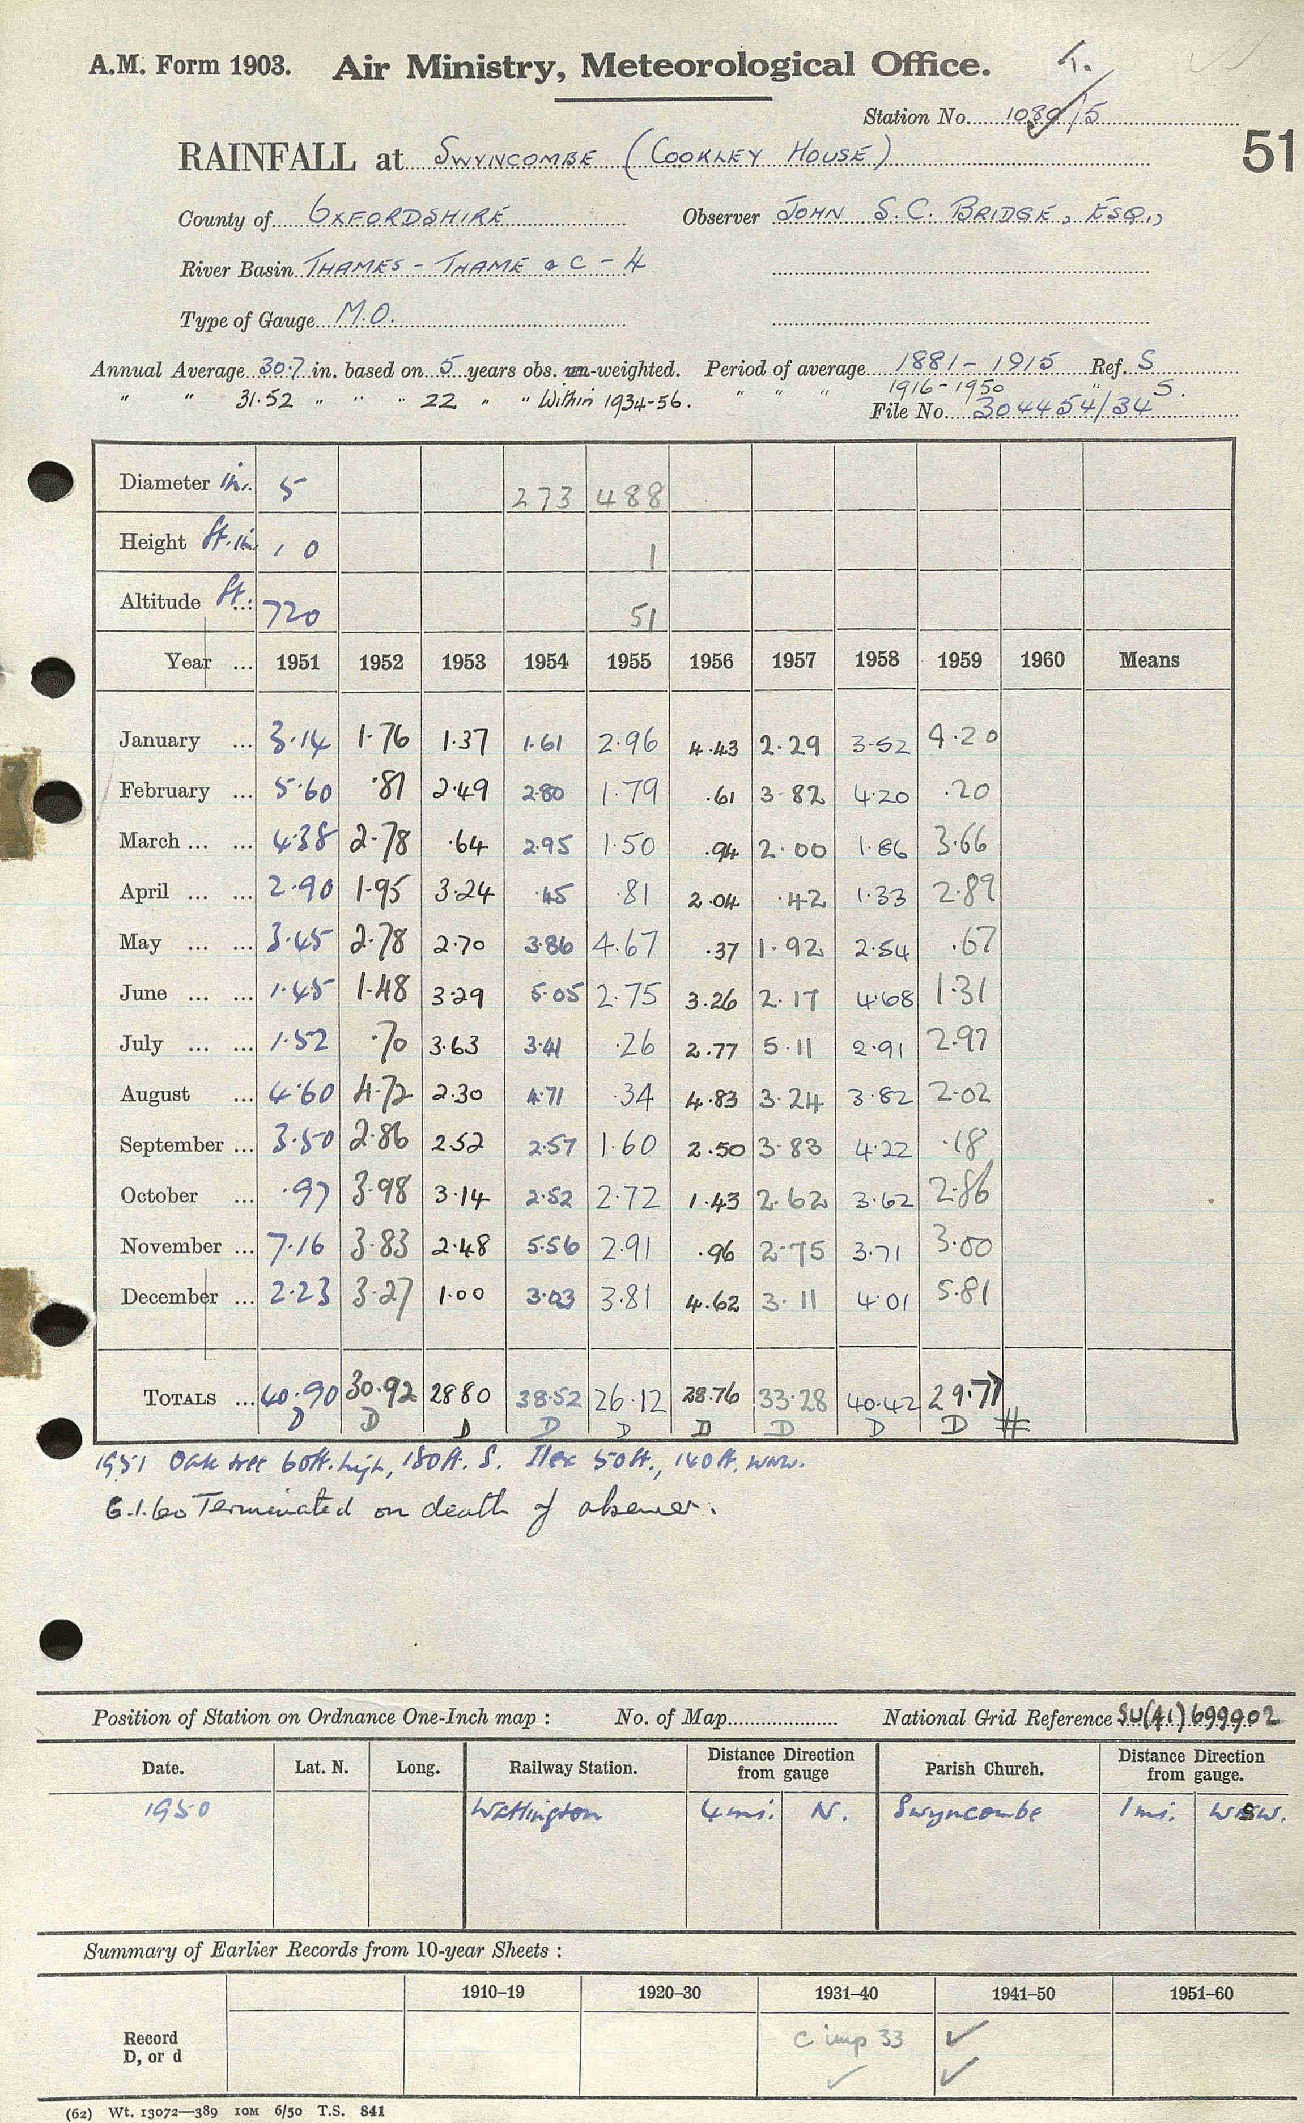 A.M. Form 1903. Air Ministry, Meteorological Office. T.
Station No. 1080/5
51
RAINFALL at SWYNCOMBE (COOKLEY HOUSE)
County of OXFORDSHIRE Observer JOHN S.C. BRIDGE, ESQ.,
River Basin THAMES - THAME & C - 4
Type of Gauge M.O.
Annual Average 30.7 in. based on 5 years obs. un-weighted. Period of average 1881-1915 Ref. S
" " 31.52 " " " 22 " " Within 1934-56. " " " 1916-1950 " S.
File No. 304454/34
Diameter in. 5 273 488
Height ft. in. 1 0 1
Altitude ft. 720 51
Year ... 1951 1952 1953 1954 1955 1956 1957 1958 1959 1960 Means
January ... 3.14 1.76 1.37 1.61 2.96 4.43 2.29 3.52 4.20
February ... 5.60 .81 2.49 2.80 1.79 .61 3.82 4.20 .20
March ... ... 4.38 2.78 .64 2.95 1.50 .94 2.00 1.86 3.66
April ... ... 2.90 1.95 3.24 .45 .81 2.04 .42 1.33 2.89
May ... ... 3.45 2.78 2.70 3.86 4.67 .37 1.92 2.54 .67
June ... ... 1.45 1.48 3.29 5.05 2.75 3.26 2.17 4.68 1.31
July ... ... 1.52 .70 3.63 3.41 .26 2.77 5.11 2.91 2.97
August ... 4.60 4.72 2.30 4.71 .34 4.83 3.24 3.82 2.02
September ... 3.50 2.86 2.52 2.57 1.60 2.50 3.83 4.22 .18
October ... .97 3.98 3.14 2.52 2.72 1.43 2.62 3.62 2.86
November ... 7.16 3.83 2.48 5.56 2.91 .96 2.75 3.71 3.00
December ... 2.23 3.27 1.00 3.03 3.81 4.62 3.11 4.01 5.81
TOTALS ... 40.90 30.92 28.80 38.52 26.12 28.76 33.28 40.42 29.77
D D D D D D D D D #
1951 Oak tree 60ft. high, 180ft. S. Ilex 50ft., 140ft. WNW.
6.1.60 Terminated on death of observer.
Position of Station on Ordnance One-Inch map : No. of Map National Grid Reference SU(41)699902
Date. Lat. N. Long. Railway Station. Distance Direction from gauge Parish Church. Distance Direction from gauge.
1950 Watlington 4 mi. N. Swyncombe 1 mi. WSW.
Summary of Earlier Records from 10-year Sheets :
1910–19 1920–30 1931–40 1941–50 1951–60
Record D, or d C imp 33 ✓
✓ ✓
(62) Wt. 13072—389 10M 6/50 T.S. 841